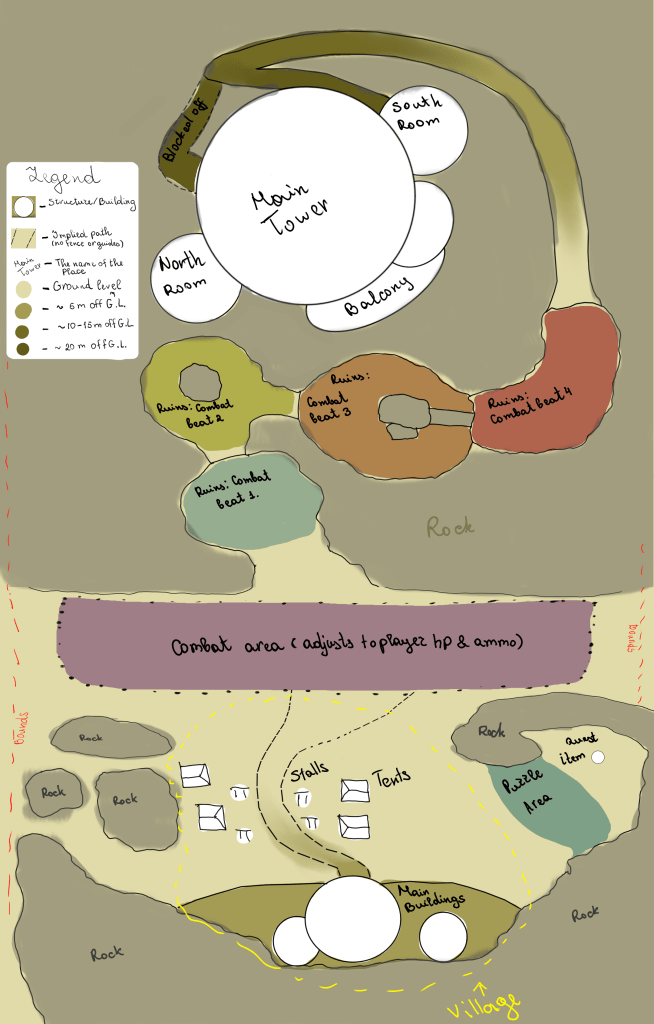 South
Room
Blocked off
Main
Tower
North
Room
Balcony
Legend
- Structure/Building
- Implied path
(no fence or guides)
Main
Tower - The name of the
Place
- Ground level
- ~ 5 m off G.L.
- ~10-15m off G.L.
- ~ 20 m off G.L.
Ruins: Combat
beat 2
Ruins:
Combat
beat 3
Ruins:
Combat beat 4
Ruins: Combat
beat 1.
Rock
Combat area ( adjusts to player hp & ammo)
Bounds
Bounds
Rock
Rock
Rock
Stalls
Tents
Rock
quest
item
Puzzle
Area
Main
Buildings
Rock
Rock
Village